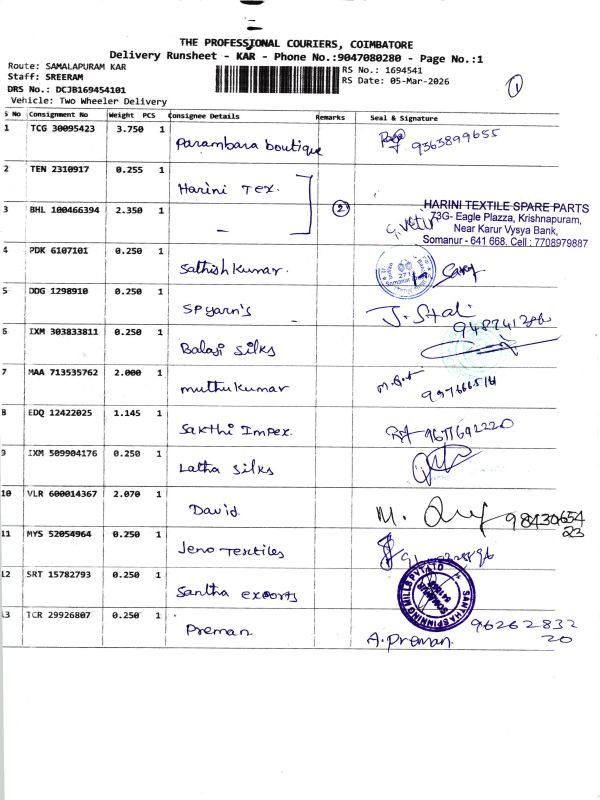 THE PROFESSIONAL COURIERS, COIMBATORE
Delivery Runsheet - KAR - Phone No.:9047080280 - Page No.:1
Route: SAMALAPURAM KAR
RS No.: 1694541
Staff: SREERAM
RS Date: 05-Mar-2026
DRS No.: DCJB169454101
1
Vehicle: Two Wheeler Delivery
S No Consignment No Weight PCS Consignee Details Remarks Seal & Signature
1 TCG 30095423 3.750 1 Parambara boutique 9363899655
2 TEN 2310917 0.255 1 Harini Tex.
3 BHL 100466394 2.350 1 2
HARINI TEXTILE SPARE PARTS
73G- Eagle Plazza, Krishnapuram,
Near Karur Vysya Bank,
Somanur - 641 668. Cell : 7708979887
4 PDK 6107101 0.250 1 Sathish kumar.
5 DDG 1298910 0.250 1 SP yarn's
6 IXM 303833811 0.250 1 Balaji Silks
7 MAA 713535762 2.000 1 muthukumar
8 EDQ 12422025 1.145 1 Sakthi Impex. 9677692220
9 IXM 509904176 0.250 1 Latha Silks
10 VLR 600014367 2.070 1 David. M. 98430654
23
11 MYS 52054964 0.250 1 Jeno Textiles
12 SRT 15782793 0.250 1 Santha exports
SANTHA SPINNING MILLS PVT LTD
SOMANUR
13 TCR 29926807 0.250 1 Preman A. Preman. 96262832
20